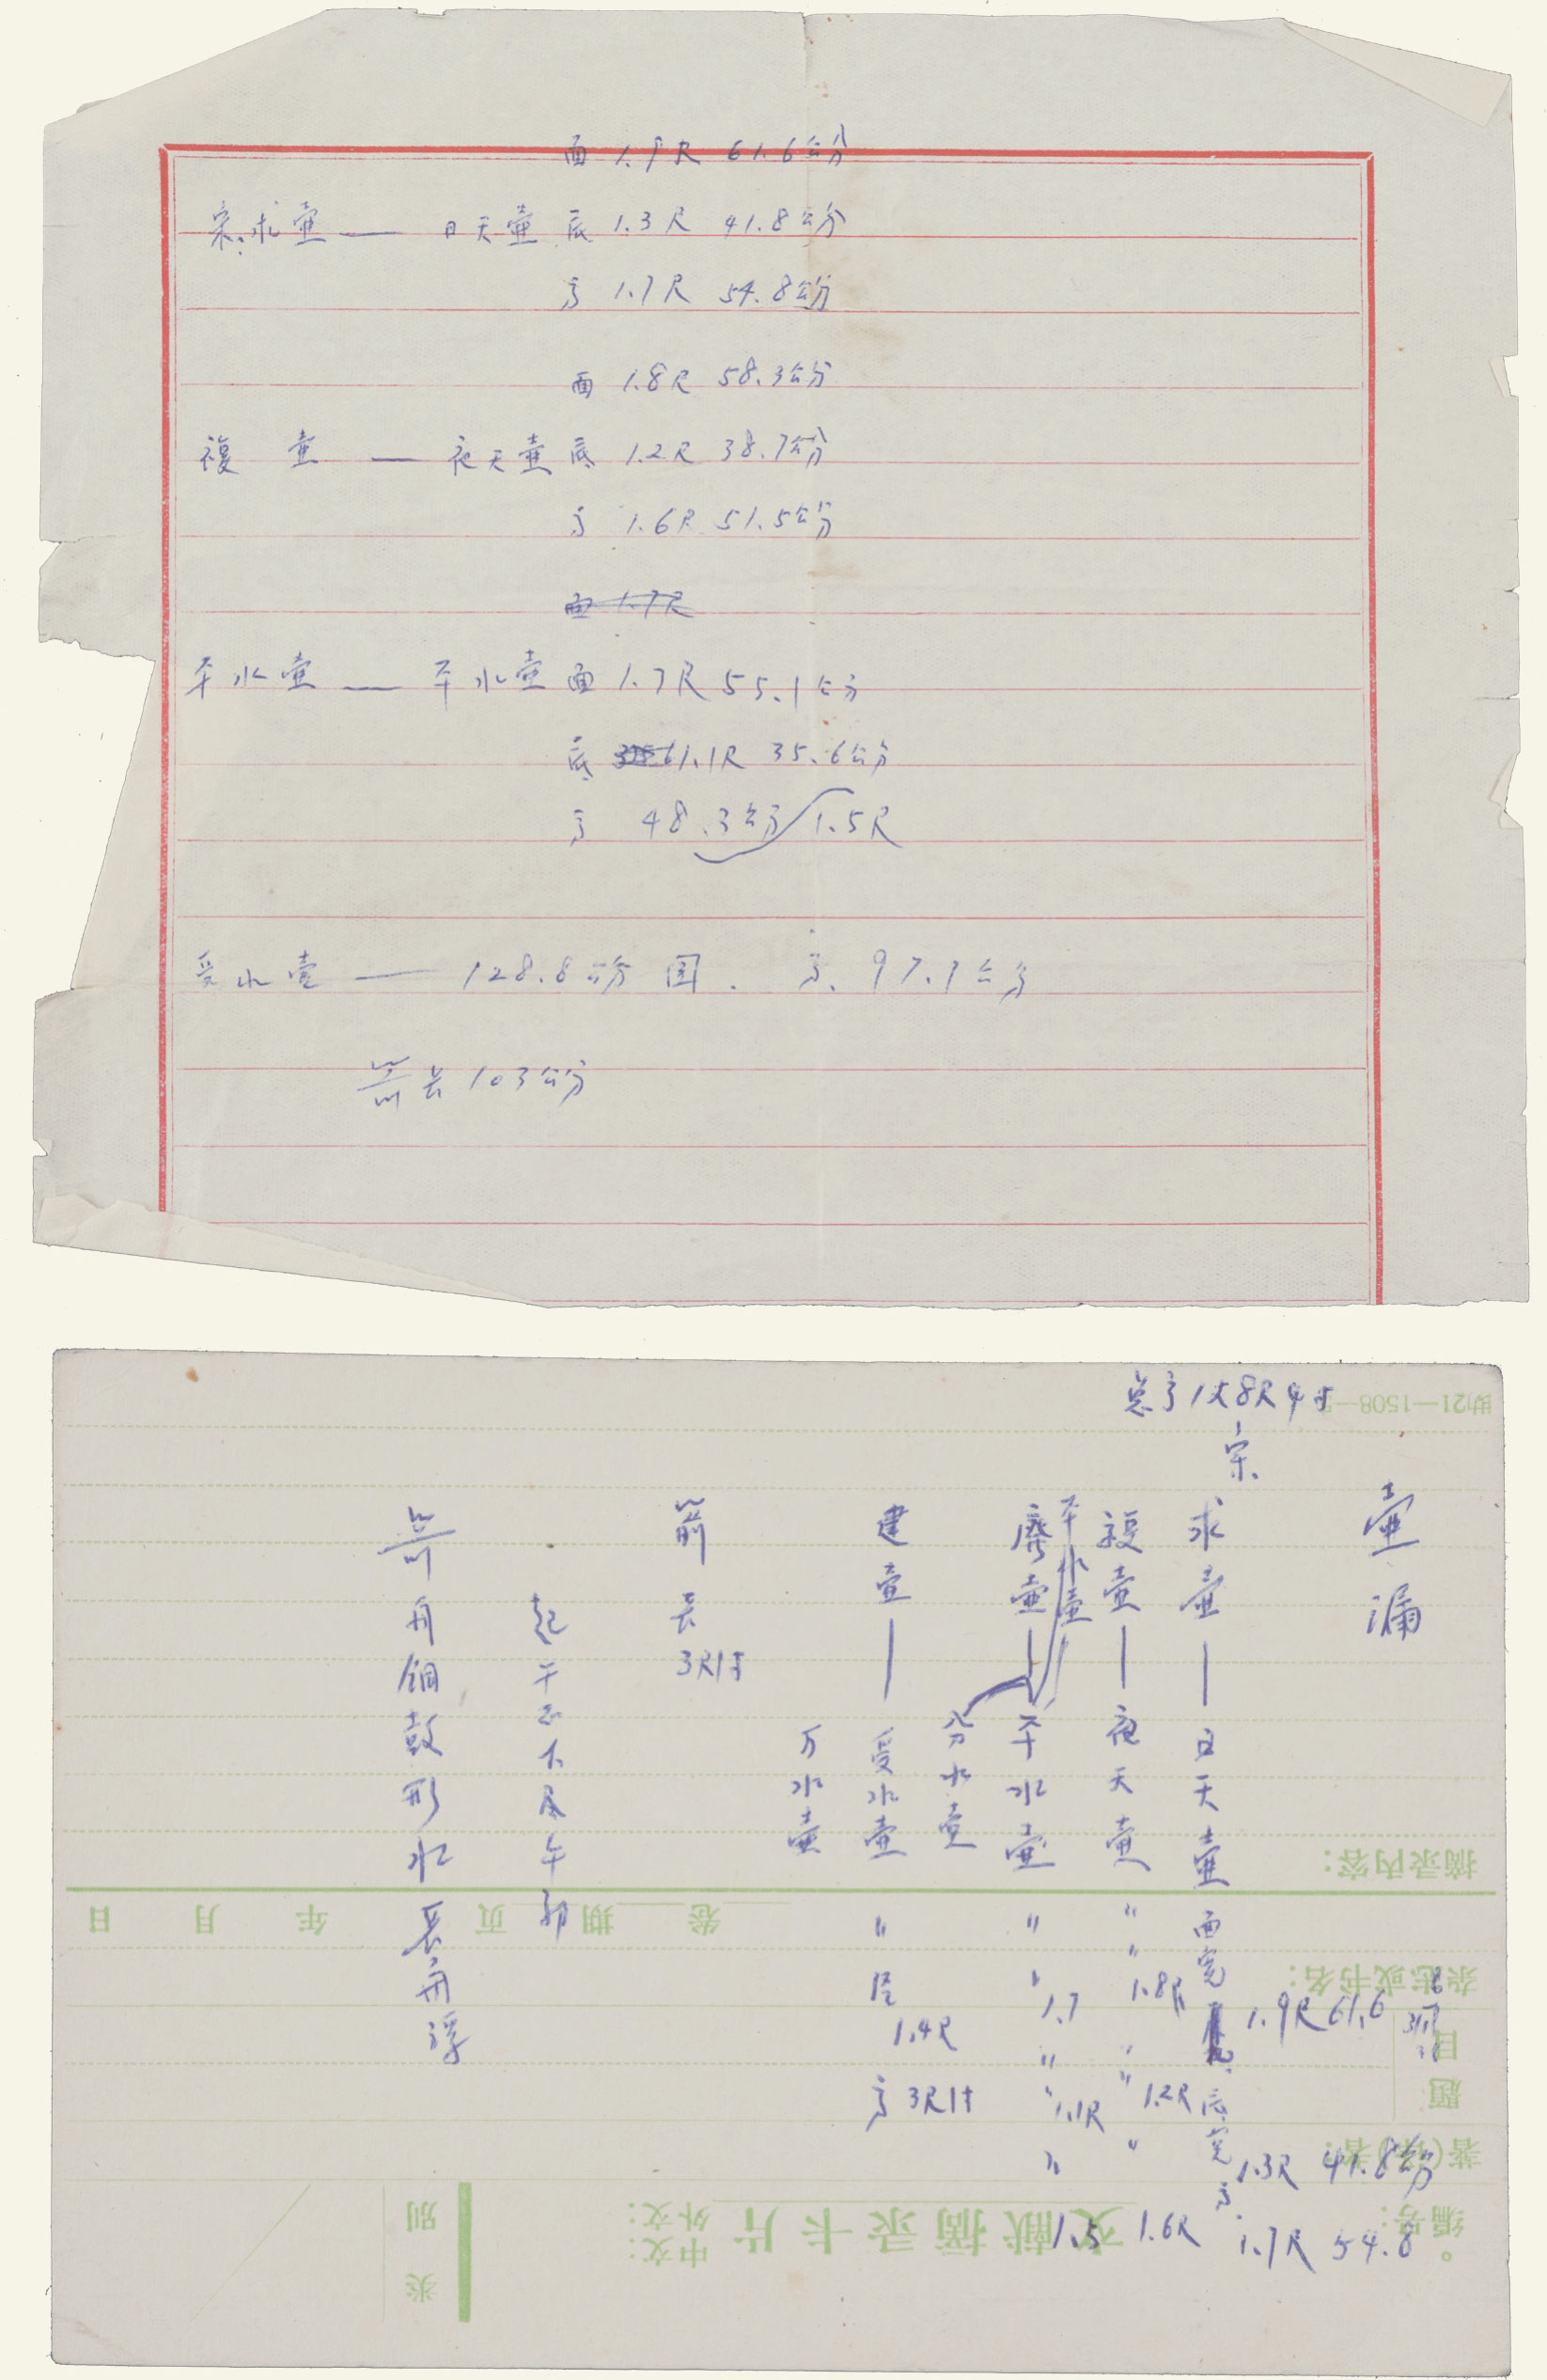 面 1.9尺 61.6公分
宋.求壶 — 日天壶 底 1.3尺 41.8公分
高 1.7尺 54.8公分
面 1.8尺 58.3公分
複 壶 — 夜天壶 底 1.2尺 38.7公分
高 1.6尺 51.5公分
面 1.7尺
平水壶 — 平水壶 面 1.7尺 55.1公分
底 1.1尺 35.6公分
高 48.3公分 1.5尺
受水壶 — 128.8公分 围. 高. 97.7公分
箭长 103公分
总高1丈8尺4寸
壶漏
宋.
求壶 — 日天壶 面宽 1.9尺 61.6
底宽 1.3尺 41.8公分
高. 1.7尺 54.8
複壶 — 夜天壶 〃 〃 1.8尺 〃 1.2尺 〃 1.6尺
平水壶
廃壶 — 平水壶 〃 〃 1.7 〃 〃 1.1尺 〃 1.5
分水壶
建壶 — 受水壶 〃 径 1.4尺 高 3尺1寸
万水壶
箭长 3尺1寸
起子正 午初
箭用铜鼓形水长舟浮
助21—1508—
摘录内容:
卷 期 页 年 月 日
杂志或书名:
题目
著(译)者:
编号:
文献摘录卡片
中文:
外文:
类别